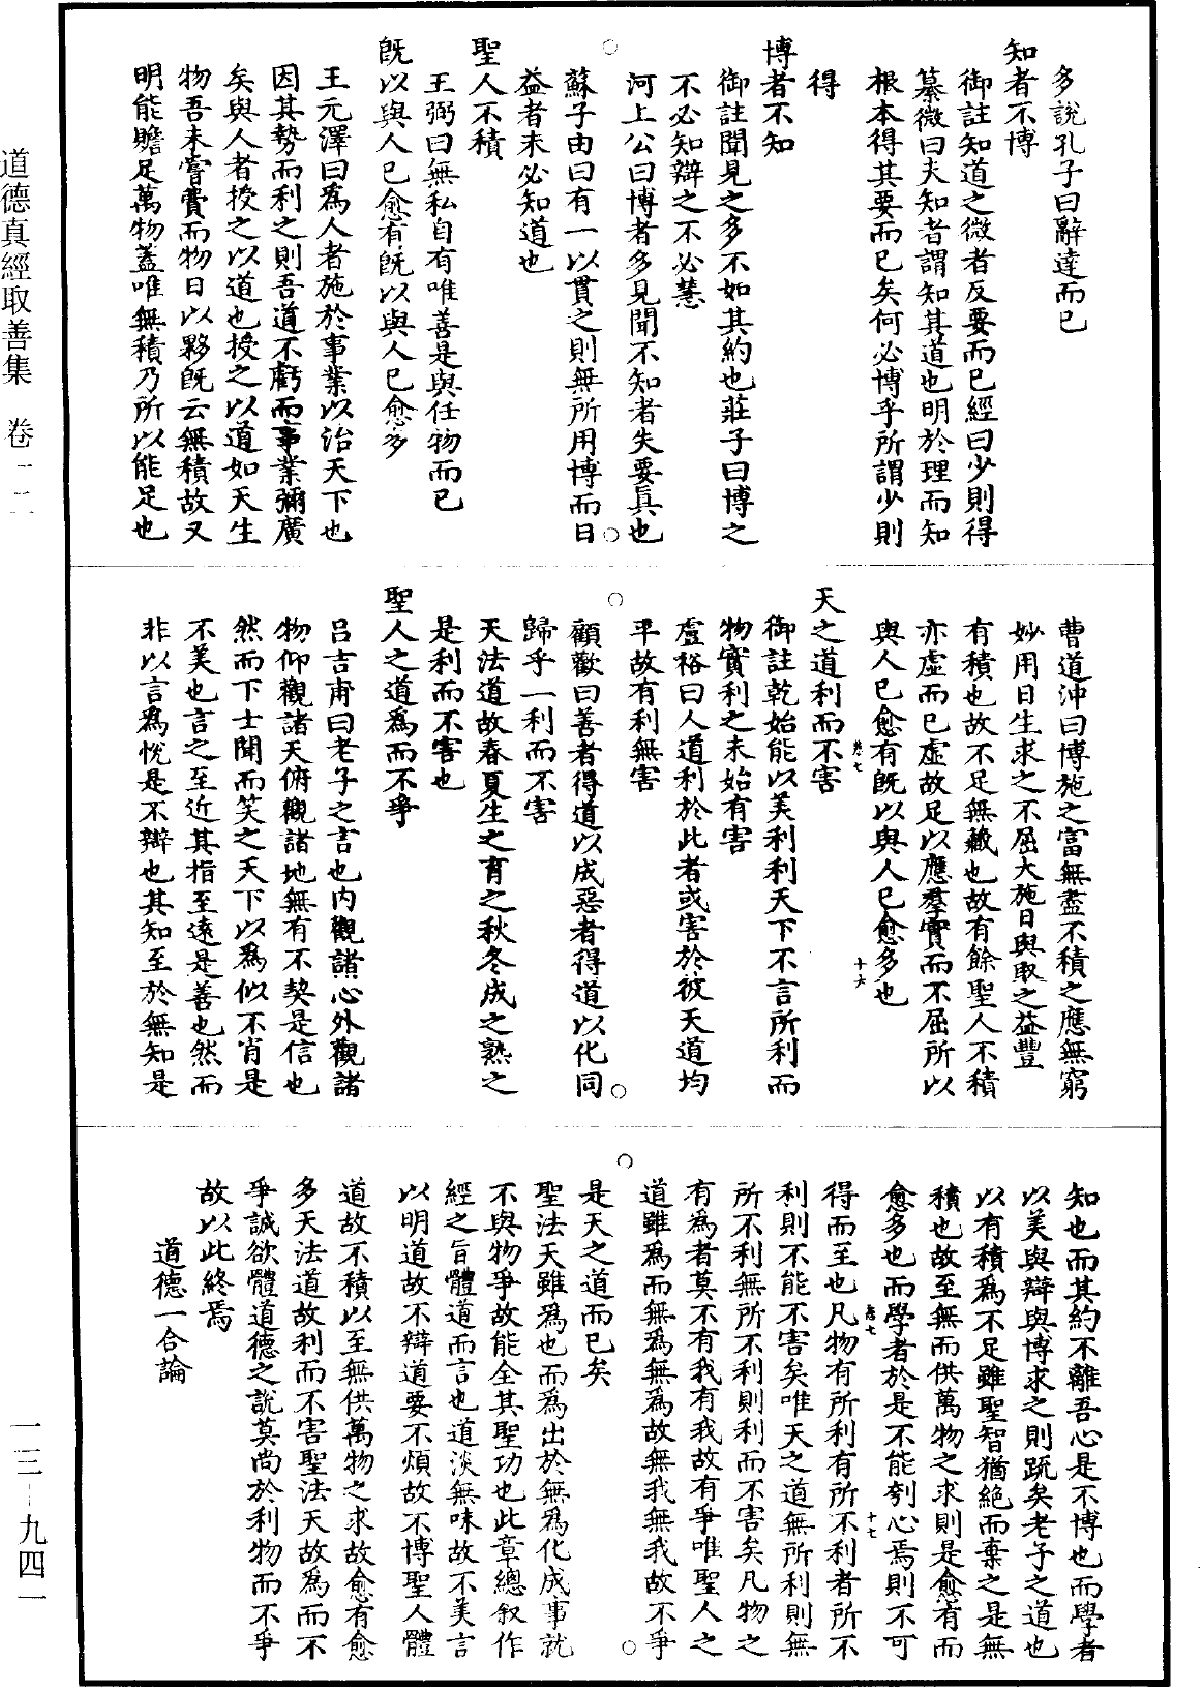 多說孔子曰辭達而已
知者不博
御註知道之微者反要而已經曰少則得
纂微曰夫知者謂知其道也明於理而知
根本得其要而已矣何必博乎所謂少則
得
博者不知
御註聞見之多不如其約也莊子曰博之
不必知辯之不必慧
河上公曰博者多見聞不知者失要真也
蘇子由曰有一以貫之則無所用博而日
益者未必知道也
聖人不積
王弼曰無私自有唯善是與任物而已
既以與人已愈有既以與人已愈多
王元澤曰為人者施於事業以治天下也
因其勢而利之則吾道不虧而事業彌廣
矣與人者授之以道也授之以道如天生
物吾未嘗費而物日以夥既云無積故又
明能贍足萬物蓋唯無積乃所以能足也
曹道沖曰博施之富無盡不積之應無窮
妙用日生求之不屈大施日與取之益豐
有積也故不足無藏也故有餘聖人不積
亦虛而已虛故足以應羣實而不屈所以
與人已愈有既以與人已愈多也
卷七
十六
天之道利而不害
御註乾始能以美利利天下不言所利而
物實利之未始有害
盧裕曰人道利於此者或害於彼天道均
平故有利無害
顧歡曰善者得道以成惡者得道以化同
歸乎一利而不害
天法道故春夏生之育之秋冬成之熟之
是利而不害也
聖人之道為而不爭
呂吉甫曰老子之言也內觀諸心外觀諸
物仰觀諸天俯觀諸地無有不契是信也
然而下士聞而笑之天下以為似不肖是
不美也言之至近其指至遠是善也然而
非以言為悅是不辯也其知至於無知是
知也而其約不離吾心是不博也而學者
以美與辯與博求之則踈矣老子之道也
以有積為不足雖聖智猶絕而棄之是無
積也故至無而供萬物之求則是愈有而
愈多也而學者於是不能刳心焉則不可
卷七
十七
得而至也凡物有所利有所不利者所不
利則不能不害矣唯天之道無所利則無
所不利無所不利則利而不害矣凡物之
有為者莫不有我有我故有爭唯聖人之
道雖為而無為無為故無我無我故不爭
是天之道而已矣
聖法天雖為也而為出於無為化成事就
不與物爭故能全其聖功也此章總叙作
經之旨體道而言也道淡無味故不美言
以明道故不辯道要不煩故不博聖人體
道故不積以至無供萬物之求故愈有愈
多天法道故利而不害聖法天故為而不
爭誠欲體道德之說莫尚於利物而不爭
故以此終焉
道德一合論
道德真經取善集 卷一二
一三-九四一